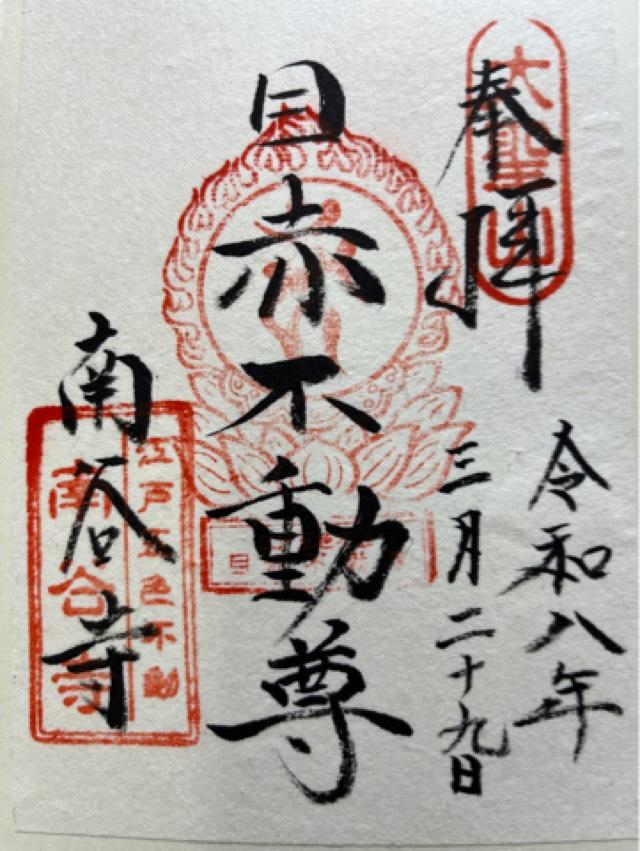 奉拝
大聖山
令和八年
三月二十九日
目赤不動尊
南谷寺
江戸五色不動
南谷寺